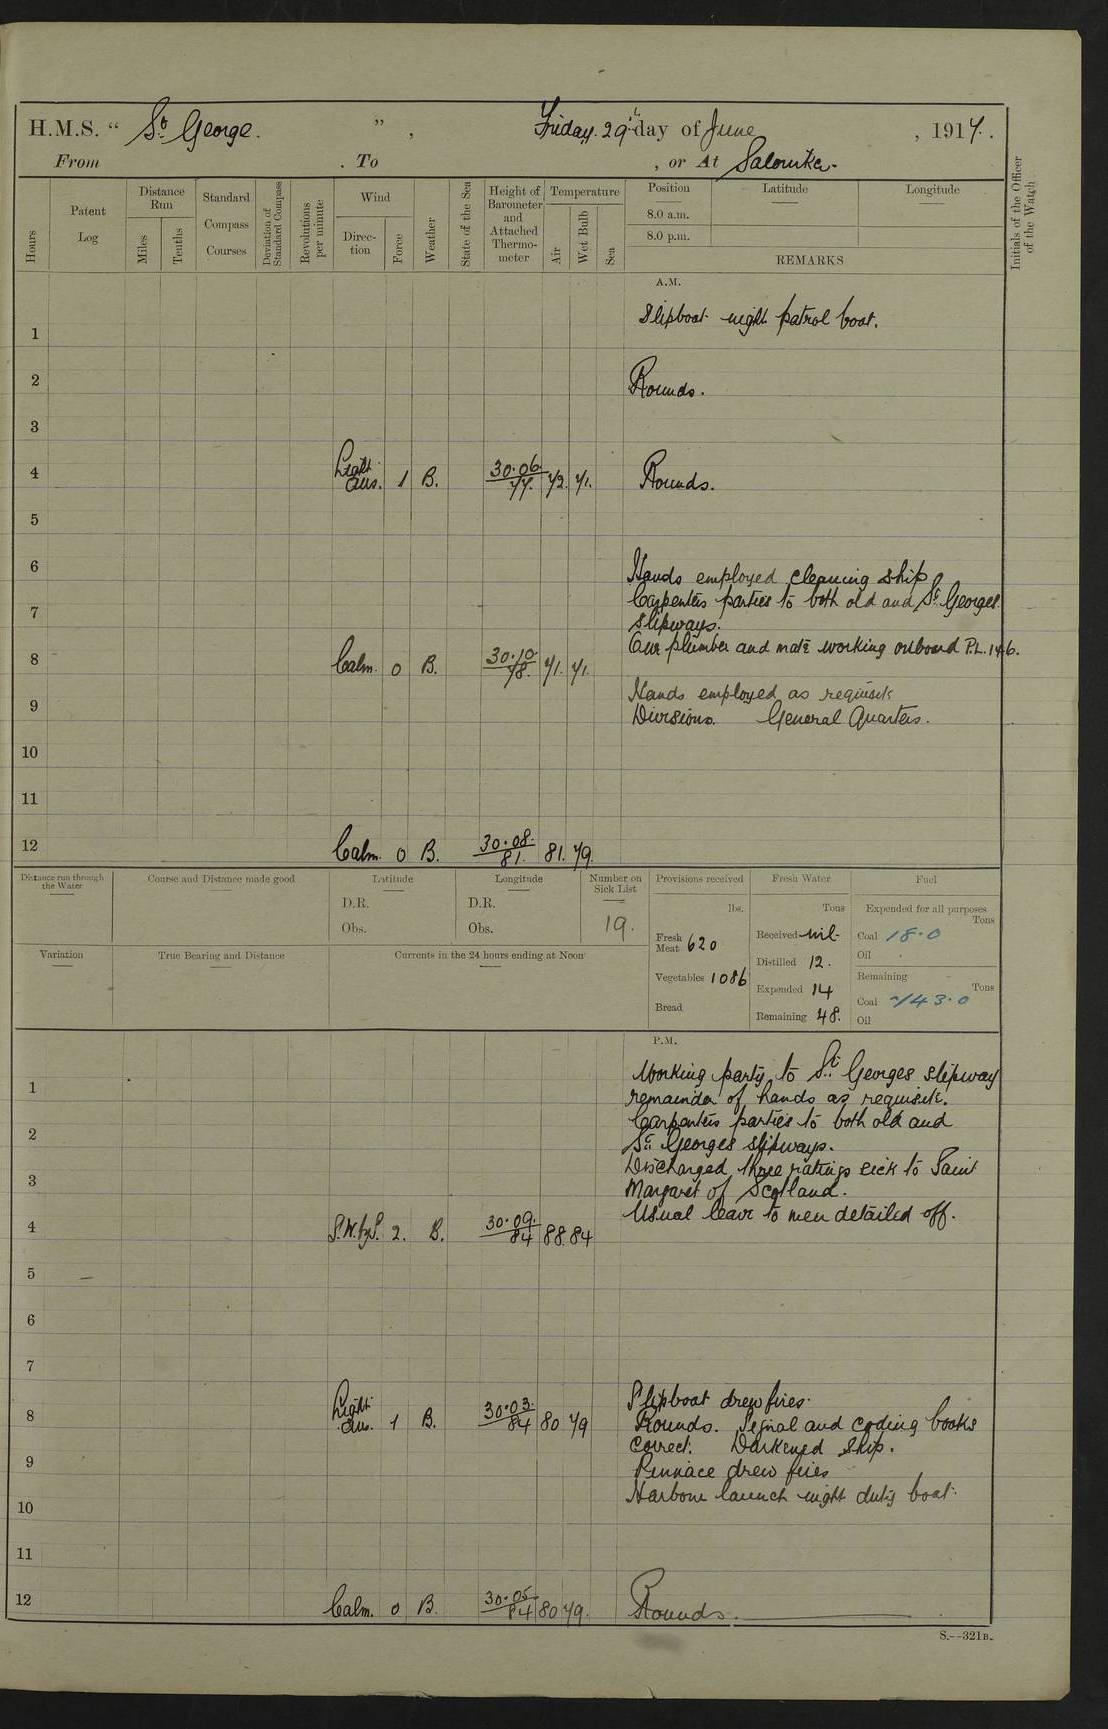 H.M.S. “ St George. ” , Friday. 29th day of June , 1917.
From . To , or At Salonika.
Hours
Patent Log
Distance Run
Miles
Tenths
Standard Compass Courses
Deviation of Standard Compass
Revolutions per minute
Wind
Direction
Force
Weather
State of the Sea
Height of Barometer and Attached Thermometer
Temperature
Air
Wet Bulb
Sea
Position
8.0 a.m.
8.0 p.m.
Latitude
Longitude
REMARKS
Initials of the Officer of the Watch
A.M.
Slipboat night patrol boat.
1
2 Rounds.
3
4 Light airs. 1 B. 30.06. 77. 72. 71. Rounds.
5
6
Hands employed cleaning ship
7 Carpenters parties to both old and St Georges
slipways.
8 Calm. 0 B. 30.10. 78. 71. 71. Our plumber and mate working onboard P.L. 146.
Hands employed as requisite
9 Divisions. General Quarters.
10
11
12 Calm. 0 B. 30.08. 81. 81. 79.
Distance run through the Water
Course and Distance made good
Latitude
D.R.
Obs.
Longitude
D.R.
Obs.
Number on Sick List
19.
Provisions received
lbs.
Fresh Meat 620
Vegetables 1086
Bread
Fresh Water
Tons
Received nil
Distilled 12.
Expended 14
Remaining 48.
Fuel
Expended for all purposes
Tons
Coal 18.0
Oil
Remaining
Tons
Coal 743.0
Oil
Variation
True Bearing and Distance
Currents in the 24 hours ending at Noon
P.M.
Working party to St Georges slipway
1 remainder of hands as requisite.
Carpenters parties to both old and
2 St Georges slipways.
Discharged three ratings sick to Saint
3 Margaret of Scotland.
Usual leave to men detailed off.
4 S.W.byS. 2. B. 30.09. 84 88. 84
5
6
7
Slipboat drew fires.
8 Light airs. 1 B. 30.03. 84 80 79 Rounds. Signal and coding books
correct. Darkened ship.
9 Pinnace drew fires
Harbour launch night duty boat.
10
11
12 Calm. 0 B. 30.05 84 80 79. Rounds.
S.--321B.